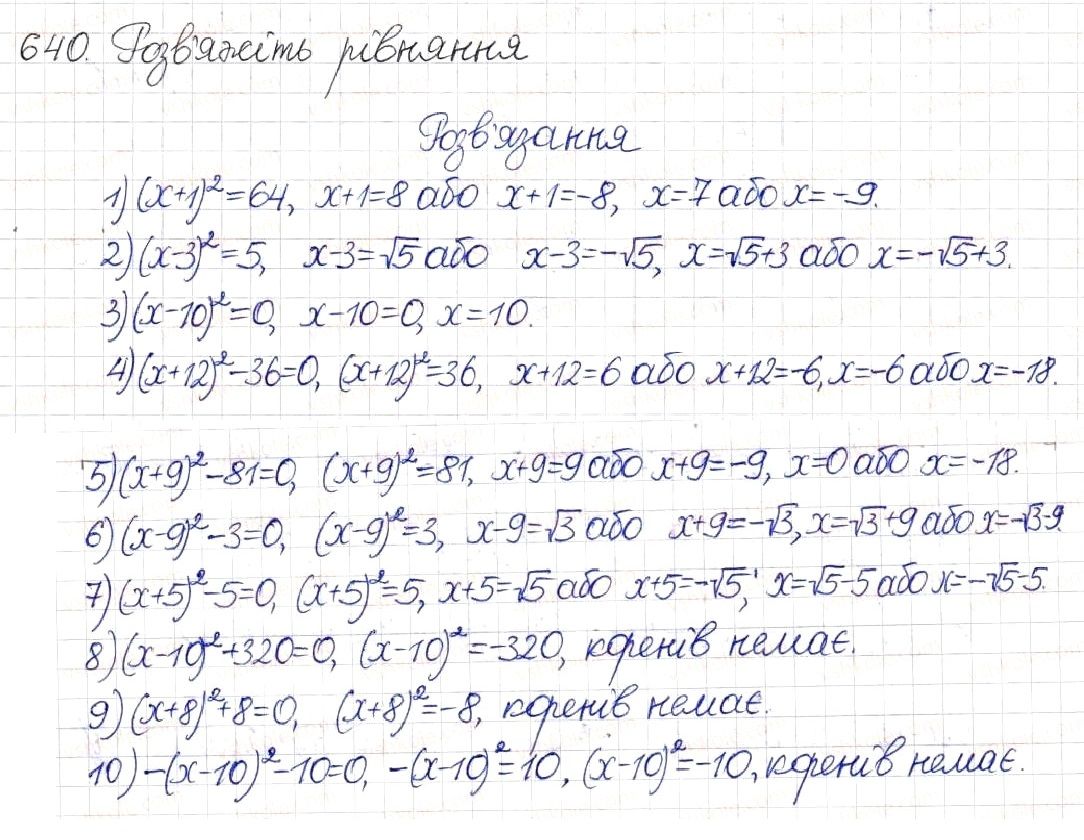 640. Розв'яжіть рівняння
Розв'язання
1) (x+1)²=64, x+1=8 або x+1=-8, x=7 або x=-9.
2) (x-3)²=5, x-3=√5 або x-3=-√5, x=√5+3 або x=-√5+3.
3) (x-10)²=0, x-10=0, x=10.
4) (x+12)²-36=0, (x+12)²=36, x+12=6 або x+12=-6, x=-6 або x=-18.
5) (x+9)²-81=0, (x+9)²=81, x+9=9 або x+9=-9, x=0 або x=-18.
6) (x-9)²-3=0, (x-9)²=3, x-9=√3 або x+9=-√3, x=√3+9 або x=-√3-9.
7) (x+5)²-5=0, (x+5)²=5, x+5=√5 або x+5=-√5, x=√5-5 або x=-√5-5.
8) (x-10)²+320=0, (x-10)²=-320, коренів немає.
9) (x+8)²+8=0, (x+8)²=-8, коренів немає.
10) -(x-10)²-10=0, -(x-10)²=10, (x-10)²=-10, коренів немає.